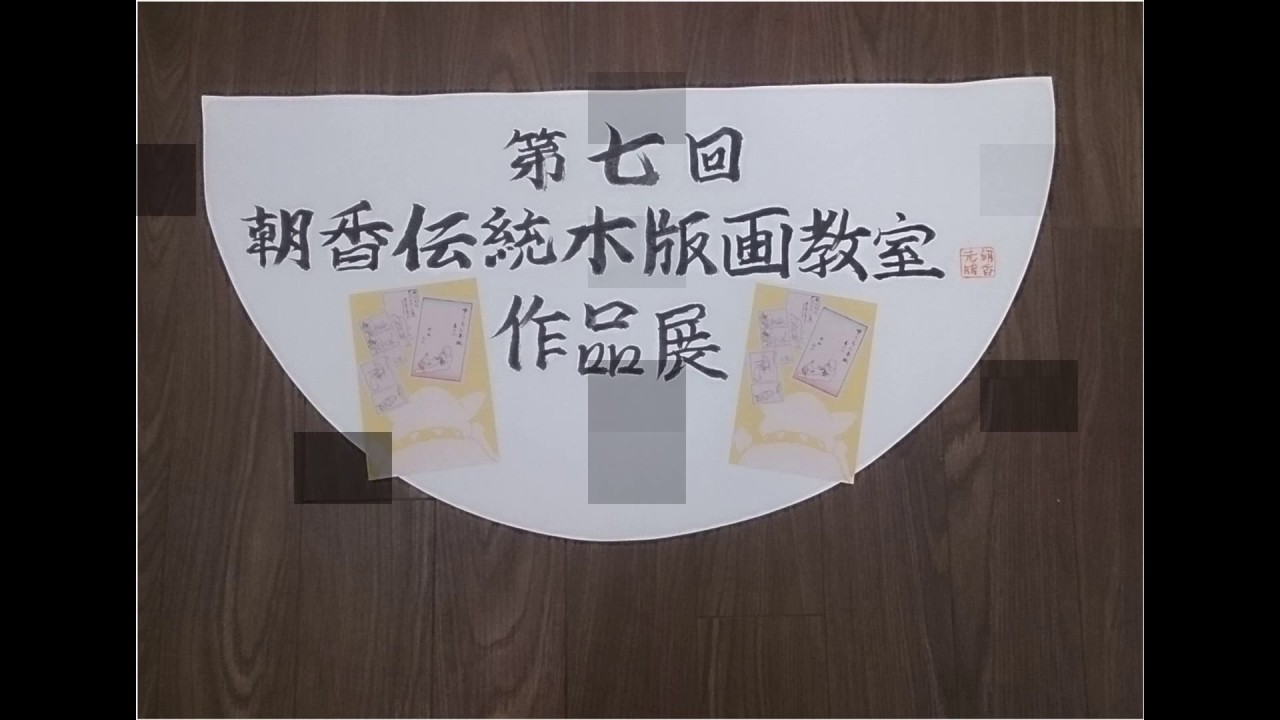 第七回
朝香伝統木版画教室
作品展